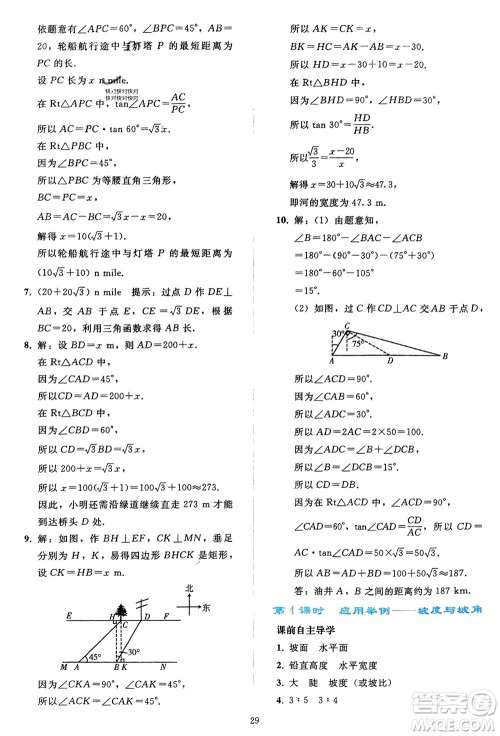 依题意有∠APC=60°,∠BPC=45°,AB=
20,轮船航行途中与灯塔 P 的最短距离为
PC 的长.
设 PC 长为 x n mile.
快对快对快对
在 Rt△APC 中,tan∠APC=AC/PC,
快对快对快对
所以 AC=PC·tan 60°=√3x.
在 Rt△PBC 中,
因为∠BPC=45°,
所以△PBC 为等腰直角三角形.
BC=PC=x.
AB=AC-BC=√3x-x=20.
解得 x=10(√3+1).
所以轮船航行途中与灯塔 P 的最短距离为
(10√3+10) n mile.
7. (20+20√3) n mile 提示:过点 D 作 DE⊥
AB,交 AB 于点 E,交 BC 于点 F.根据
BC=20,利用三角函数求得 AB 长.
8. 解:设 BD=x m,则 AD=200+x.
在 Rt△ACD 中,
因为∠CAD=45°,
所以 CD=AD=200+x.
在 Rt△BCD 中,
因为∠CBD=60°,
所以 CD=√3BD=√3x.
所以 200+x=√3x.
所以 x=100(√3+1)≈273.
因此,小明还需沿绿道继续直走 273 m 才可到
达桥头 D 处.
9. 解:如图,作 BH⊥EF,CK⊥MN,垂足
分别为 H,K,易得四边形 BHCK 是矩形.
北
东
M A 45° B K 60° D N
29
所以 AK=CK=x.
BK=HC=AK-AB=x-30.
所以 HD=x-30+10=x-20.
在 Rt△BHD 中,
因为∠BHD=30°,
所以 tan 30°=HD/HB.
所以 √3/3=(x-20)/x.
解得 x=30+10√3≈47.3.
即河的宽度为 47.3 m.
10. 解:(1) 由题意知,
∠B=180°-∠BAC-∠ACB=
180°-(90°-30°)-(75°+30°)=
180°-60°-105°=15°.
(2) 如图,过点 C 作 CD⊥AC,交 AB 于点 D.
C
30° 75°
A D B
因为∠B=15°,
所以∠ACB=105°.
所以∠DCB=∠B=15°.
所以 CD=BD.
因为∠CAD=60°,
所以∠ADC=30°.
所以 AD=2AC=2×50=100.
在 Rt△ACD 中,
∠CAD=60°,tan∠CAD=CD/AC,
所以 CD=AC·tan∠CAD=50×√3=50√3.
所以 AB=AD+CD=100+50√3≈187.
答:油井 A、B 之间的距离约为 187 km.
第 4 课时 应用举例——坡度与坡角
课前自主导学
1. 坡面 水平面
2. 铅直高度 水平宽度
3. 大 陡 坡度(或坡比)
4. 3∶5 3∶4